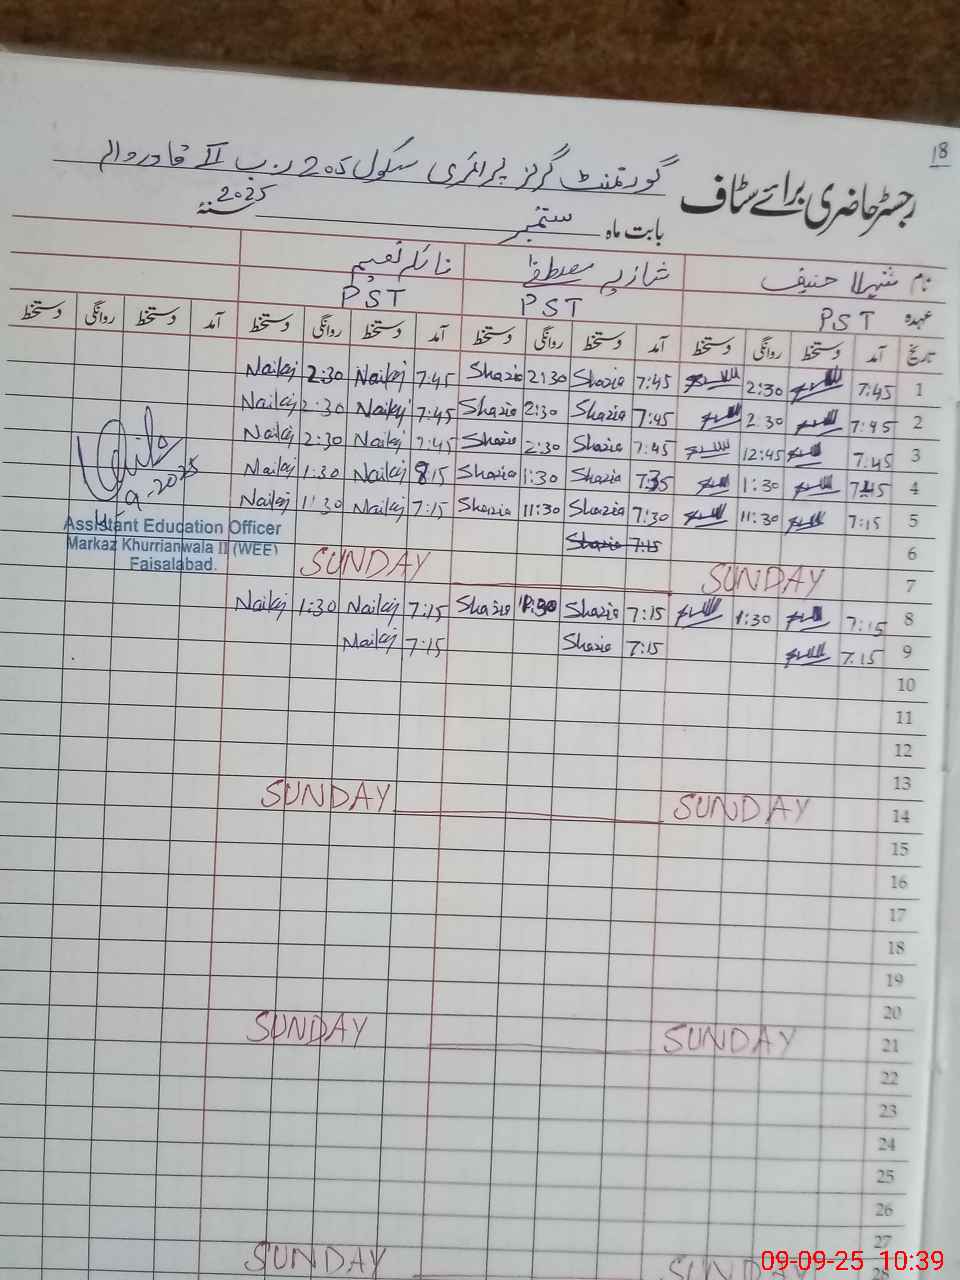 18
گورنمنٹ گرلز پرائمری سکول 205 ر ب II قادر والا
رجسٹر حاضری برائے سٹاف
بابت ماہ ستمبر 2025 سنہ
نام شہلا حنیف شازیہ مصطفےٰ نائلہ نعیم
عہدہ PST PST PST
تاریخ آمد دستخط روانگی دستخط آمد دستخط روانگی دستخط آمد دستخط روانگی دستخط آمد دستخط روانگی دستخط
1 7:45 2:30 7:45 Shazia 2:30 Shazia 7:45 Nailaj 2:30 Nailaj
2 7:45 2:30 7:45 Shazia 2:30 Shazia 7:45 Nailaj 2:30 Nailaj
3 7:45 12:45 7:45 Shazia 2:30 Shazia 7:45 Nailaj 2:30 Nailaj
4 7:45 1:30 Shazia 1:30 Shazia 8:15 Nailaj 1:30 Nailaj
5 7:15 11:30 7:30 Shazia 11:30 Shazia 7:15 Nailaj 11:30 Nailaj
6 7:15 Shazia
7 SUNDAY SUNDAY
8 7:15 1:30 7:15 Shazia Shazia 7:15 Nailaj 1:30 Nailaj
9 7:15 7:15 Shazia 7:15 Nailaj
10
11
12
13
14 SUNDAY SUNDAY
15
16
17
18
19
20
21 SUNDAY SUNDAY
22
23
24
25
26
27
28 SUNDAY SUNDAY
9-2025
Assistant Education Officer
Markaz Khurrianwala II (WEE)
Faisalabad.
09-09-25 10:39